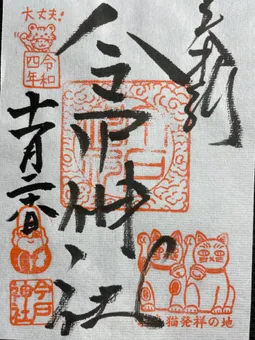 奉拝
今戸神社
大丈夫!
令和
四年
十一月二十六日
今戸
神社
猫発祥の地